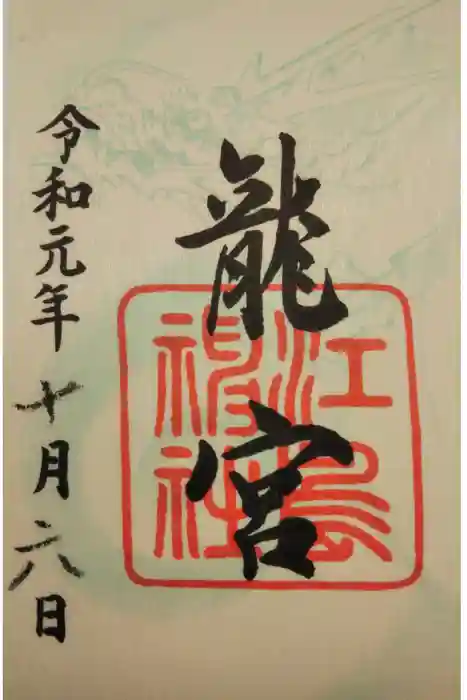 龍宮
江島
神社
令和元年十月六日